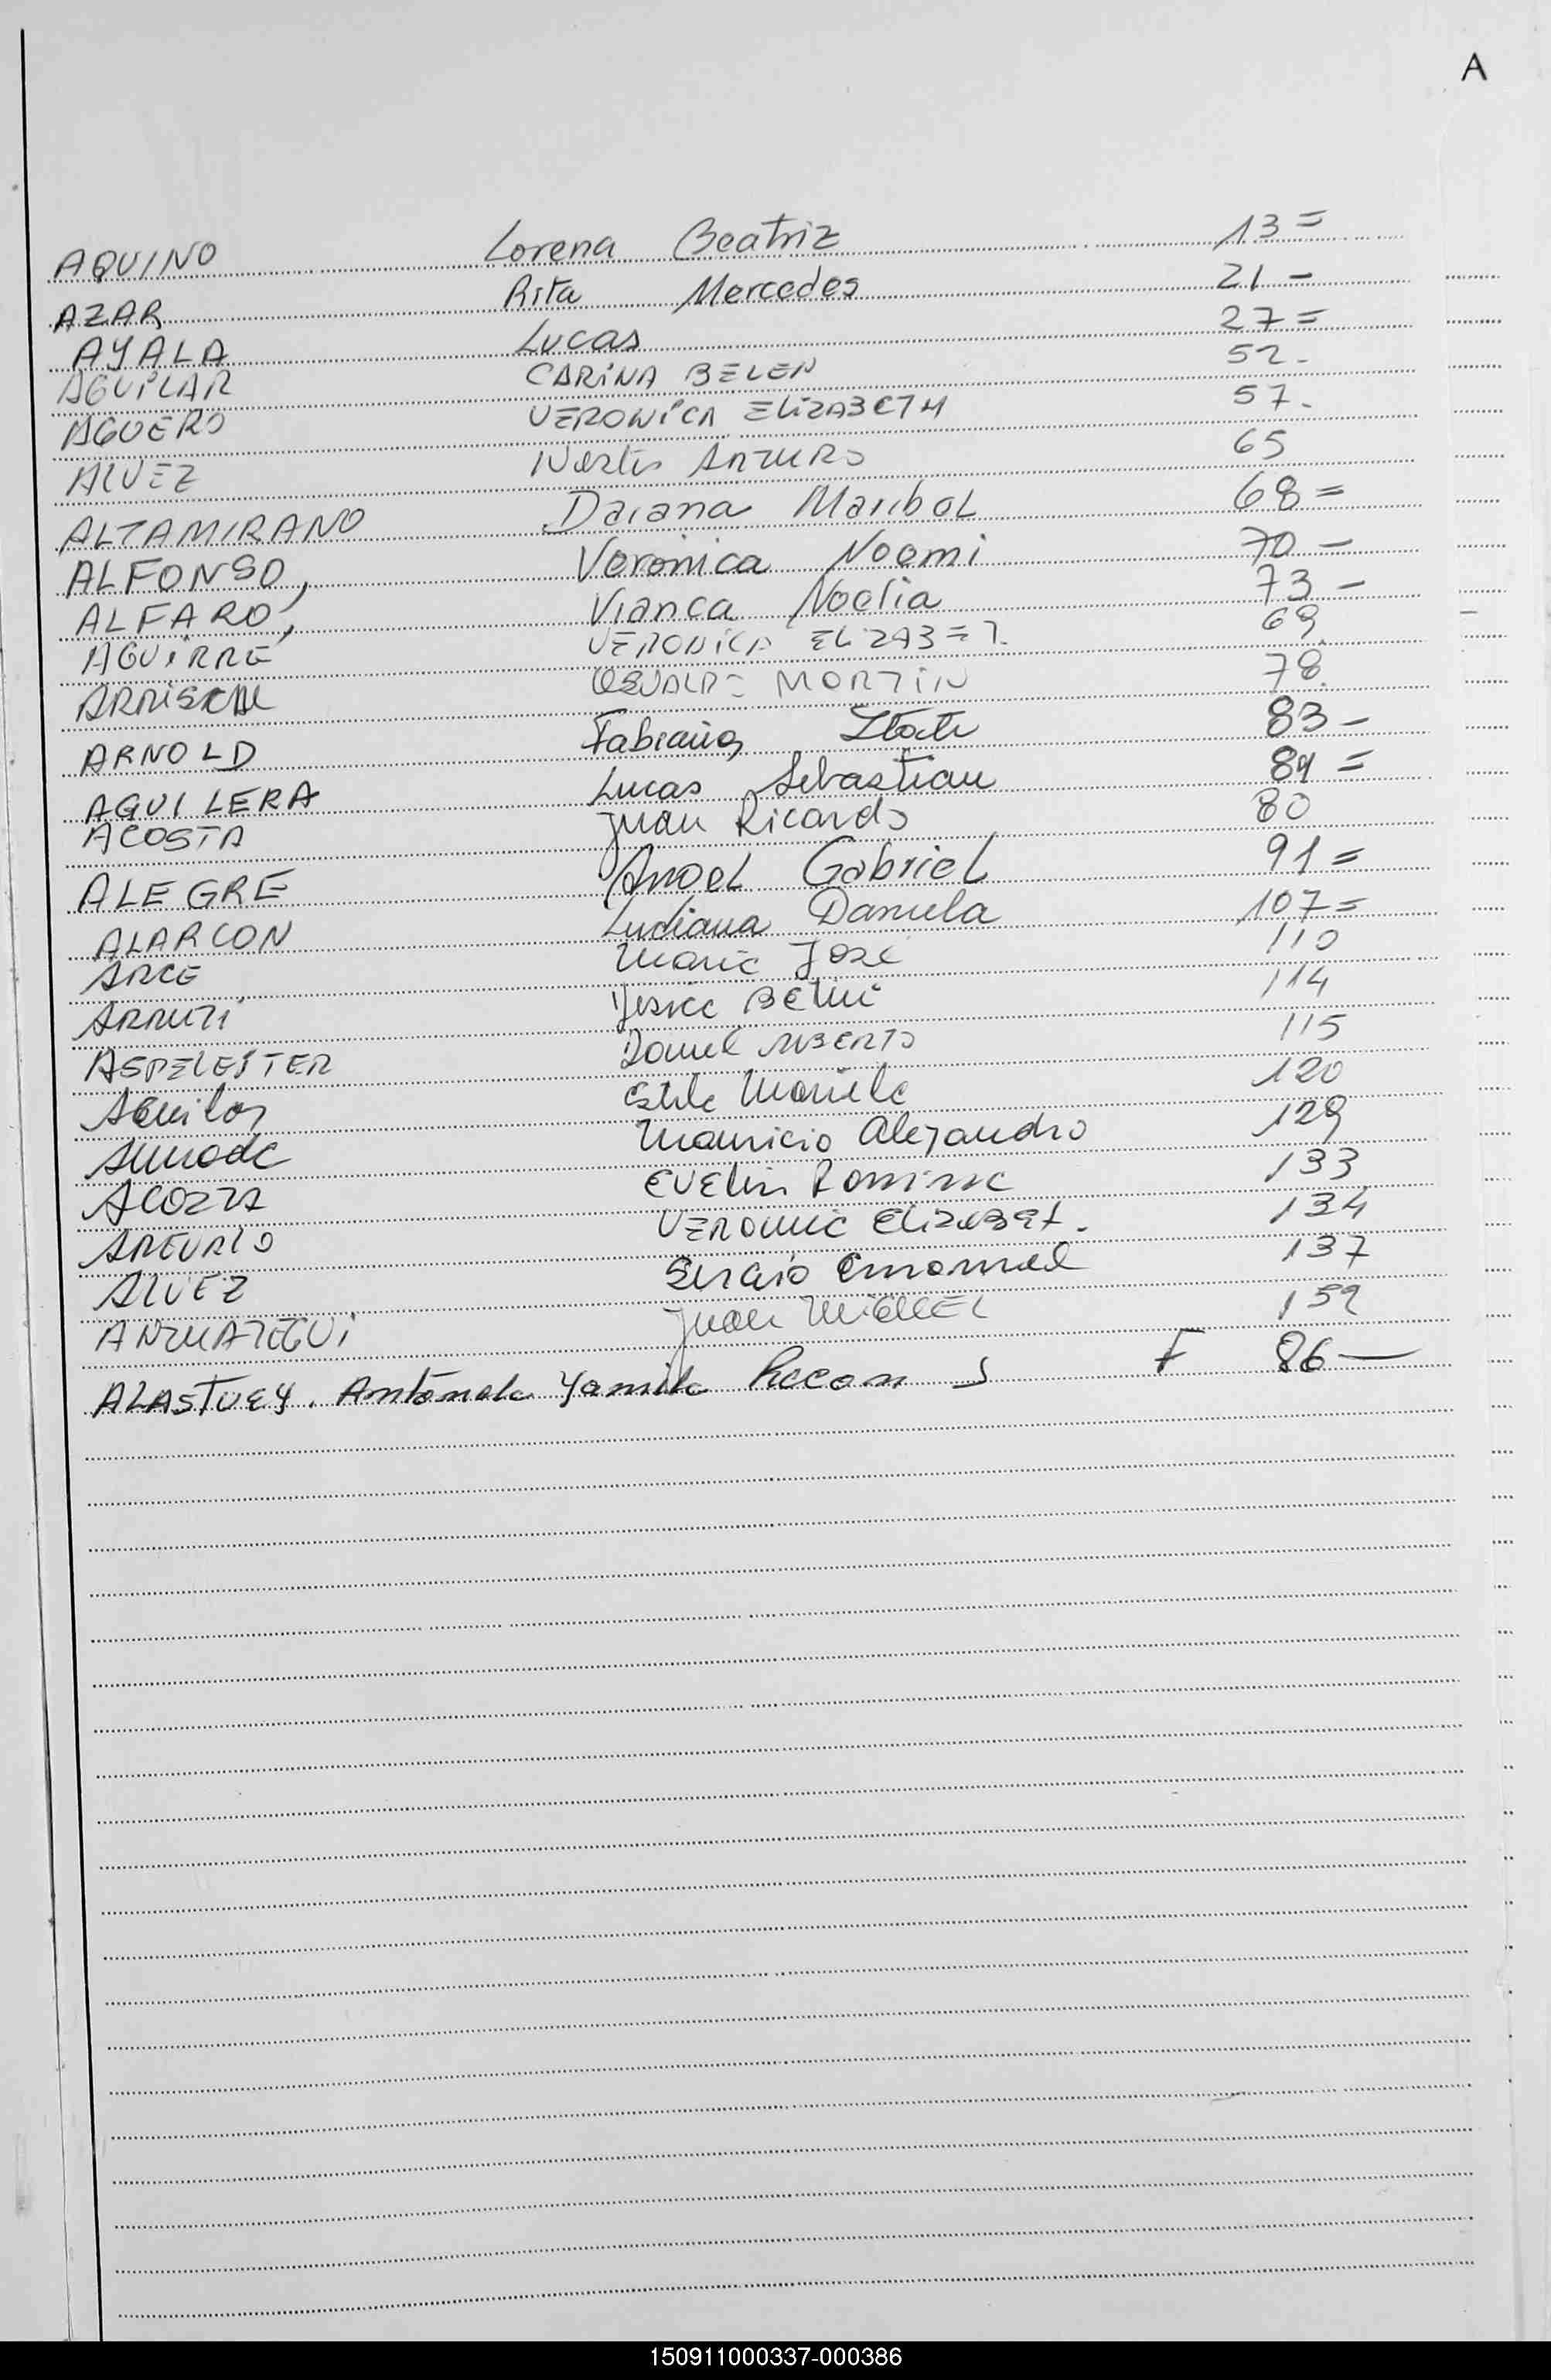 A
AQUINO Lorena Beatriz 13=
AZAR Rita Mercedes 21-
AYALA Lucas 27=
AGUILAR CARINA BELEN 52-
AGUERO VERONICA ELIZABETH 57-
ALVEZ ARTURO 65
ALTAMIRANO Daiana Maribel 68=
ALFONSO, Veronica Noemi 70-
ALFARO, Vianca Noelia 73-
AGUIRRE VERONICA ELIZABET. 69.
OSVALDO MARTIN 78.
ARNOLD Fabiana 83-
AGUILERA Lucas Sebastian 89=
ACOSTA Juan Ricardo 80
ALEGRE Angel Gabriel 91=
ALARCON Luciana Daniela 107=
ARCE Maria Jose 110
114
Daniel ALBERTO 115
Aguilar Mariela 120
Mauricio Alejandro 129
Evelin Romina 133
AREVALO VERONICA Elizabet. 134
ALVEZ Sergio Emanuel 137
Juan MIGUEL 159
ALASTUEY. Antonela Yamila F 86-
150911000337-000386